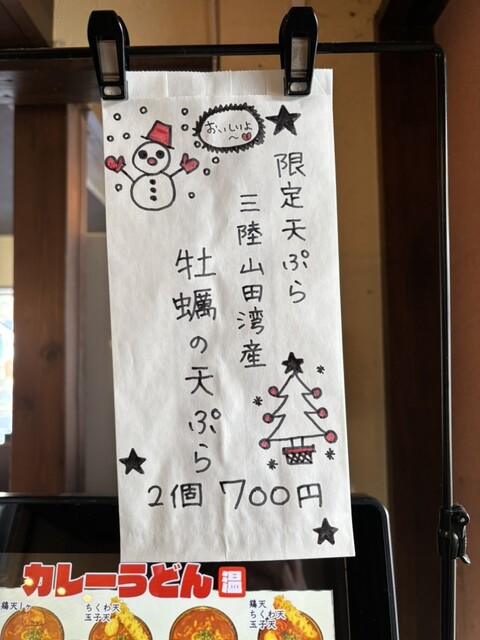 おいしいよ
〜
限定天ぷら
三陸山田湾産
牡蠣の天ぷら
2個 700円
カレーうどん 温
鶏天1ヶ
玉子天
ちくわ天
玉子天
鶏天
ちくわ天
玉子天